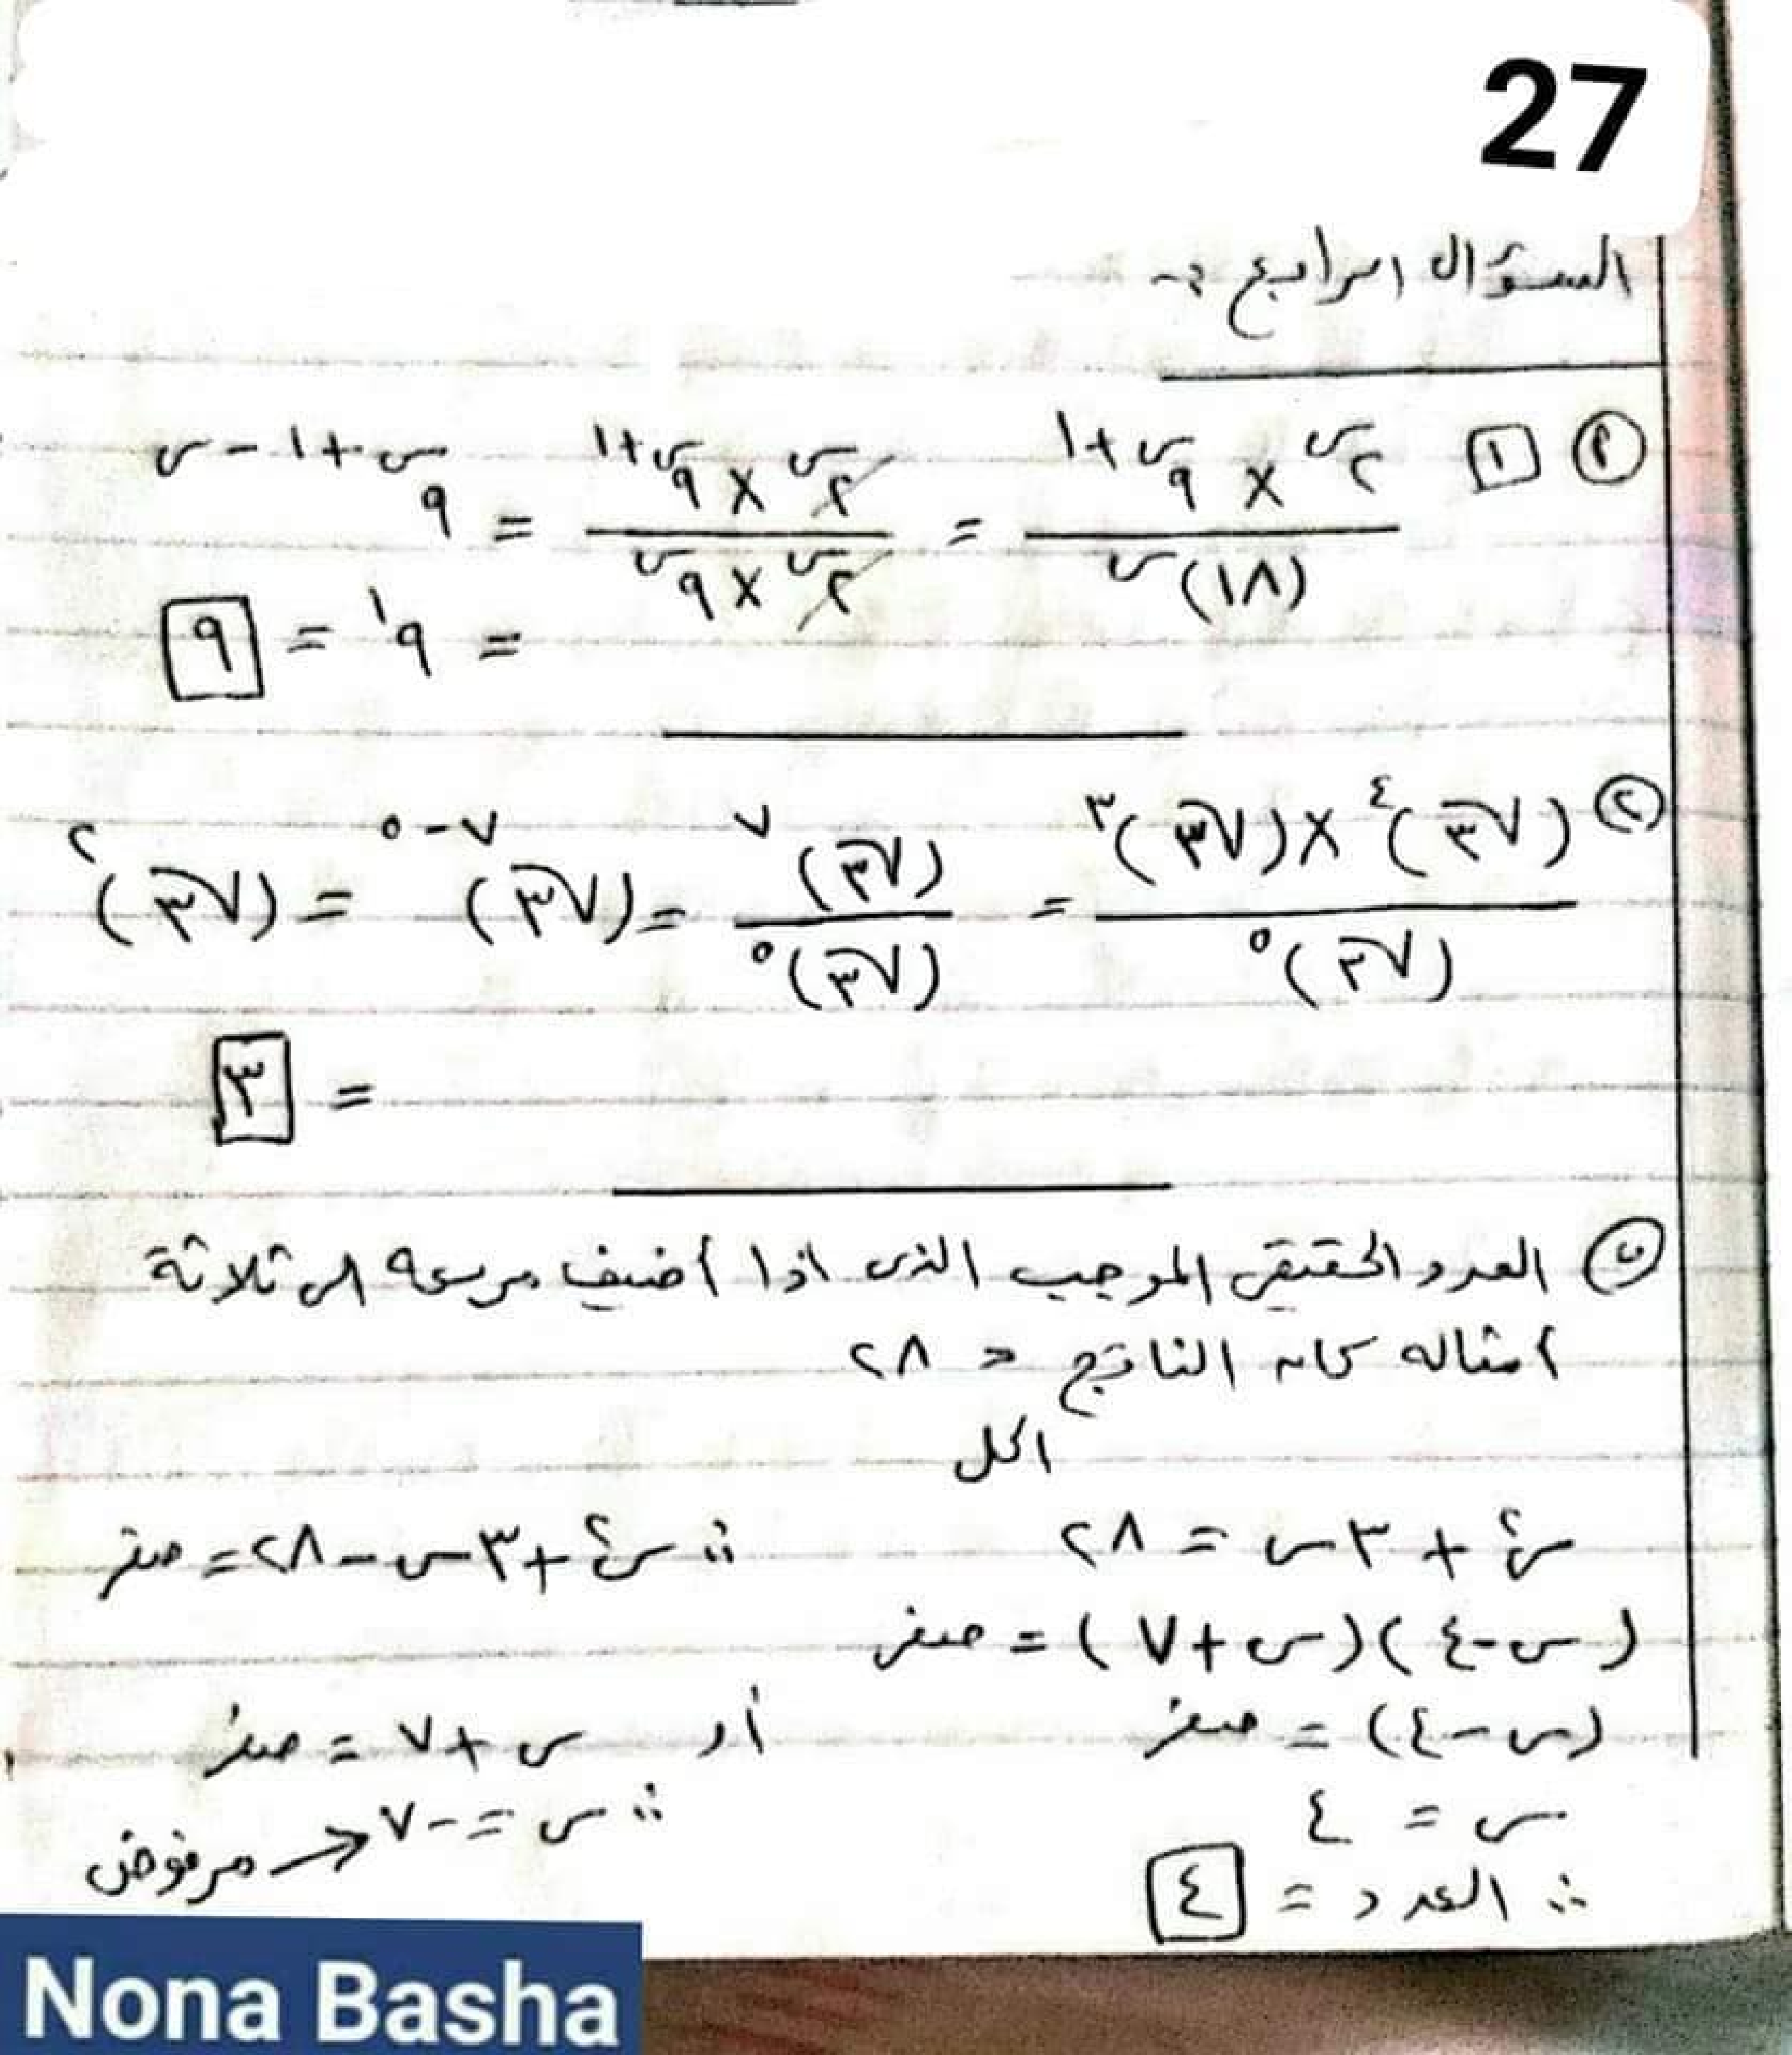 27
السؤال الرابع :-
(أ) [١] ٢^س × ٩^(س+١) / (١٨)^س = ٢^س × ٩^(س+١) / ٢^س × ٩^س = ٩^(س+١-س)
= ٩^١ = ٩
(٢) (√٣)^٤ × (√٣)^٣ / (√٣)^٥ = (√٣)^٧ / (√٣)^٥ = (√٣)^(٧-٥) = (√٣)^٢
= ٣
(ب) العدد الحقيقى الموجب الذى اذا أضيف مربعه الى ثلاثة
أمثاله كان الناتج = ٢٨
الحل
س^٢ + ٣س = ٢٨ ∴ س^٢ + ٣س - ٢٨ = صفر
(س-٤)(س+٧) = صفر
(س-٤) = صفر أو س+٧ = صفر
س = ٤ ∴ س = -٧ → مرفوض
∴ العدد = ٤
Nona Basha